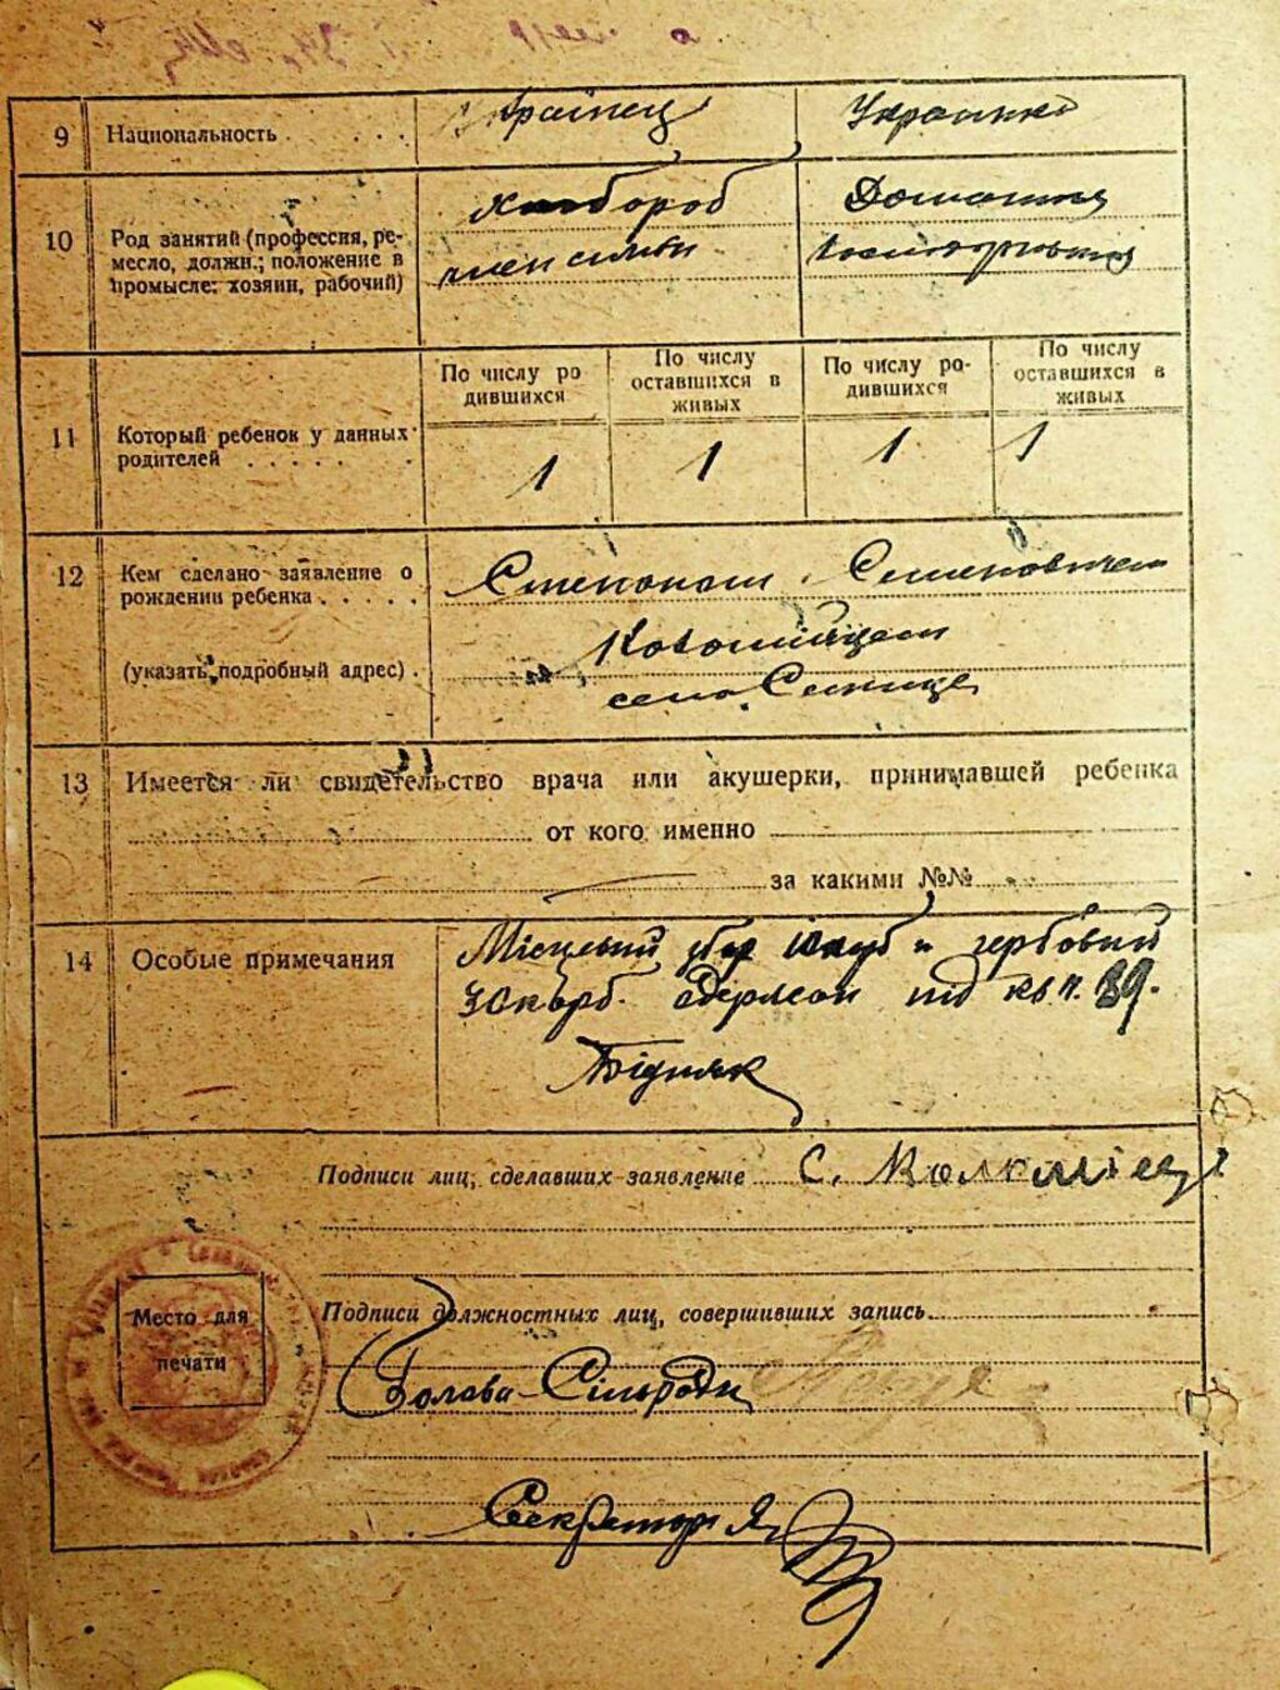 9 Национальность . . . . Українец Украинка
10 Род занятий (профессия, ре-
месло, должн.; положение в
промысле: хозяин, рабочий)
Хлібороб
член сімьи
Домашня
По числу ро
дившихся
По числу
оставшихся в
живых
По числу ро-
дившихся
По числу
оставшихся в
живых
11 Который ребенок у данных
родителей . . . . .
1 1 1 1
12 Кем сделано заявление о
рождении ребенка . . . . .
(указать подробный адрес) .
Степаном Семеновичем
Коломійцем
село Синице
13 Имеется ли свидетельство врача или акушерки, принимавшей ребенка
от кого именно
за какими №№
14 Особые примечания
Місцевий збор 10 карб и гербовий
30 карб. одержан по кв н. 89.
Бідняк
Подписи лиц, сделавших заявление С. Коломіец
Место для
печати
Подписи должностных лиц, совершивших запись
Голова Сільради
Секретар